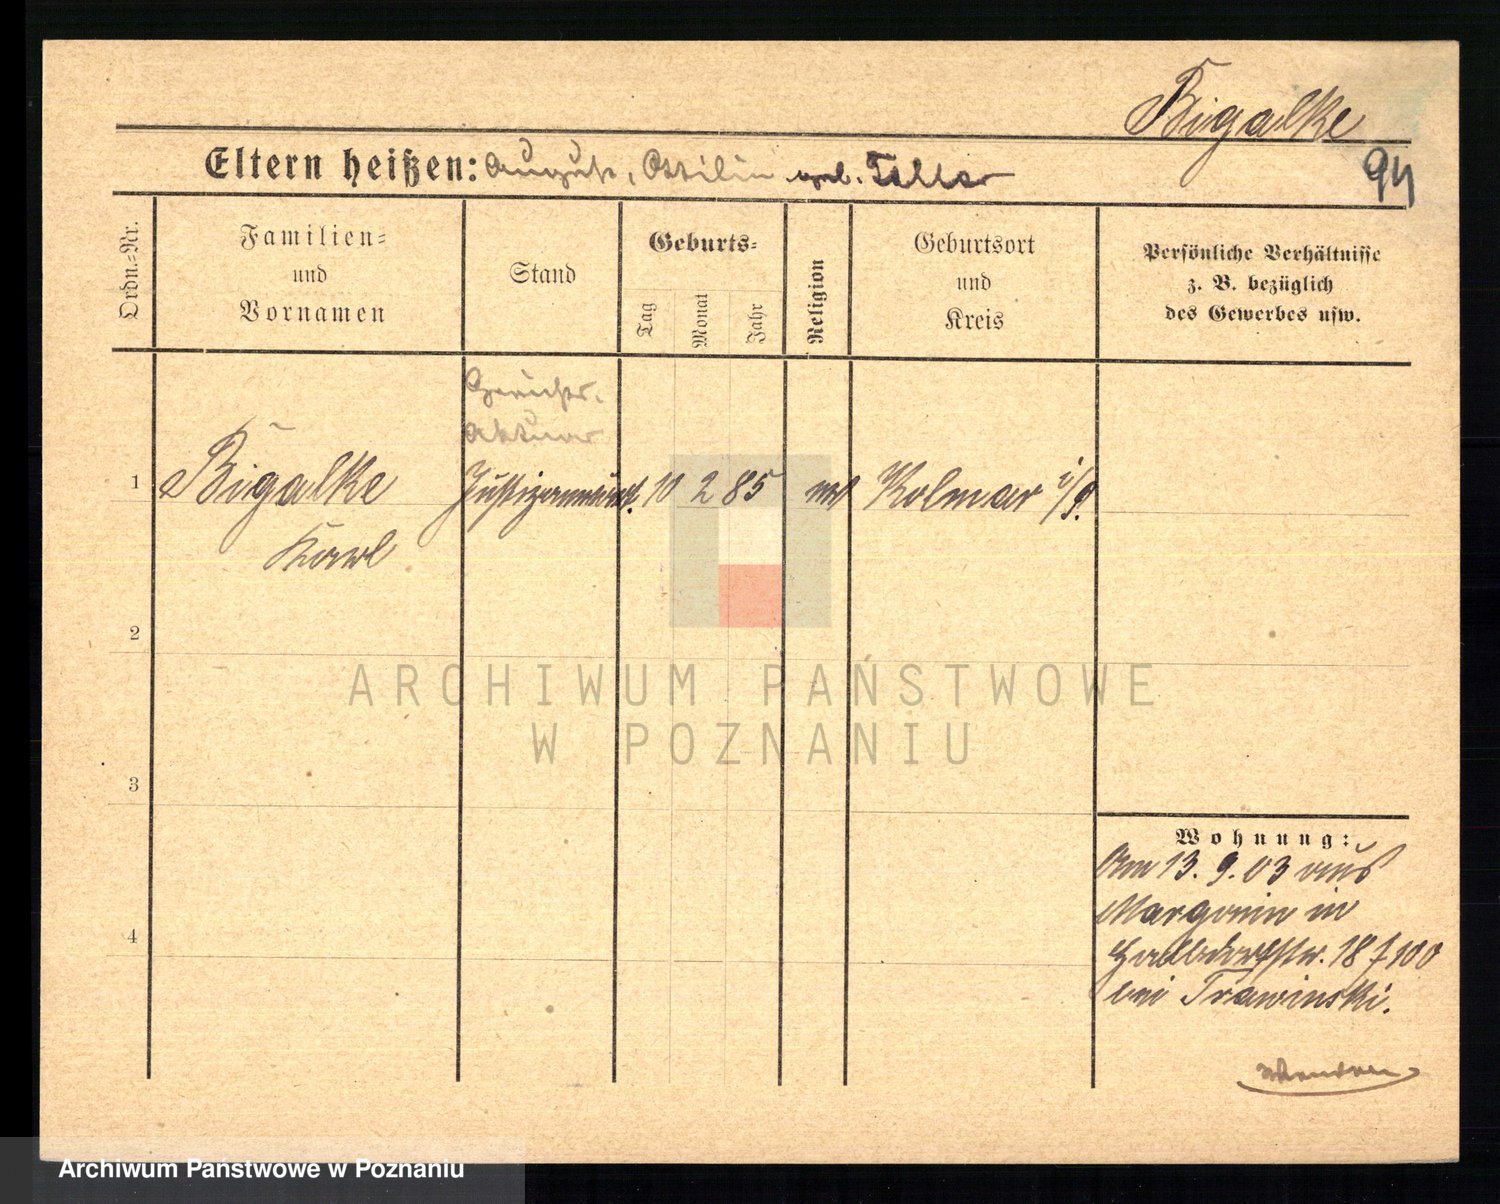 Bigalke
94
Eltern heißen: August, Ottilie geb. Teller
Ordn.-Nr.
Familien-
und
Vornamen
Stand
Geburts-
Tag
Monat
Jahr
Religion
Geburtsort
und
Kreis
Persönliche Verhältnisse
z. B. bezüglich
des Gewerbes usw.
Gerichts-
Aktuar
1 Bigalke Justizanwärt. 10 2 85 Kolmar i/P.
Karl
2
3
4
Wohnung:
Am 13. 9. 03 aus
Margonin in
Halbdorfstr. 18
bei Trawinski.
ARCHIWUM PAŃSTWOWE
W POZNANIU
Archiwum Państwowe w Poznaniu